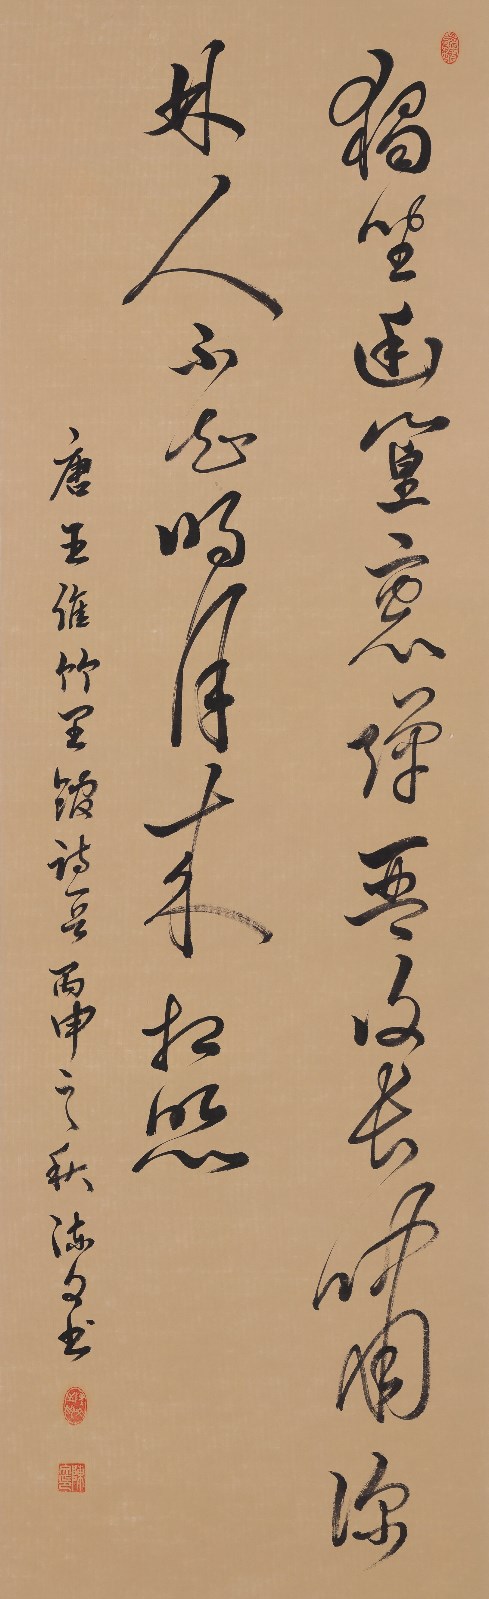 獨坐幽篁裏彈琴復長嘯深
林人不知明月來相照
唐王維竹里館詩意丙申之秋沐文書